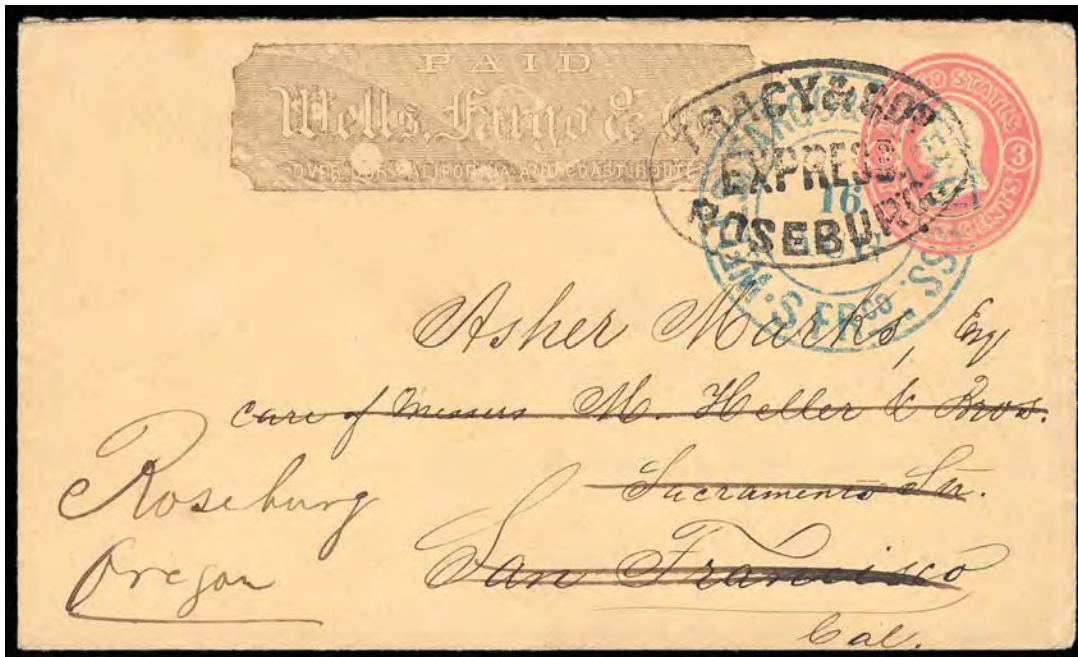 PAID
Wells, Fargo & Co
OVER OUR CALIFORNIA AND COAST ROUTES
TRACY & CO'S
EXPRESS
ROSEBURG.
WELLS, FARGO & CO. EXPRESS. S. FRCO
16
UNITED STATES
3 THREE CENTS
Asher Marks, Esq
care of Messrs M. Heller & Bros.
Sacramento Str.
San Francisco
Cal.
Roseburg
Oregon